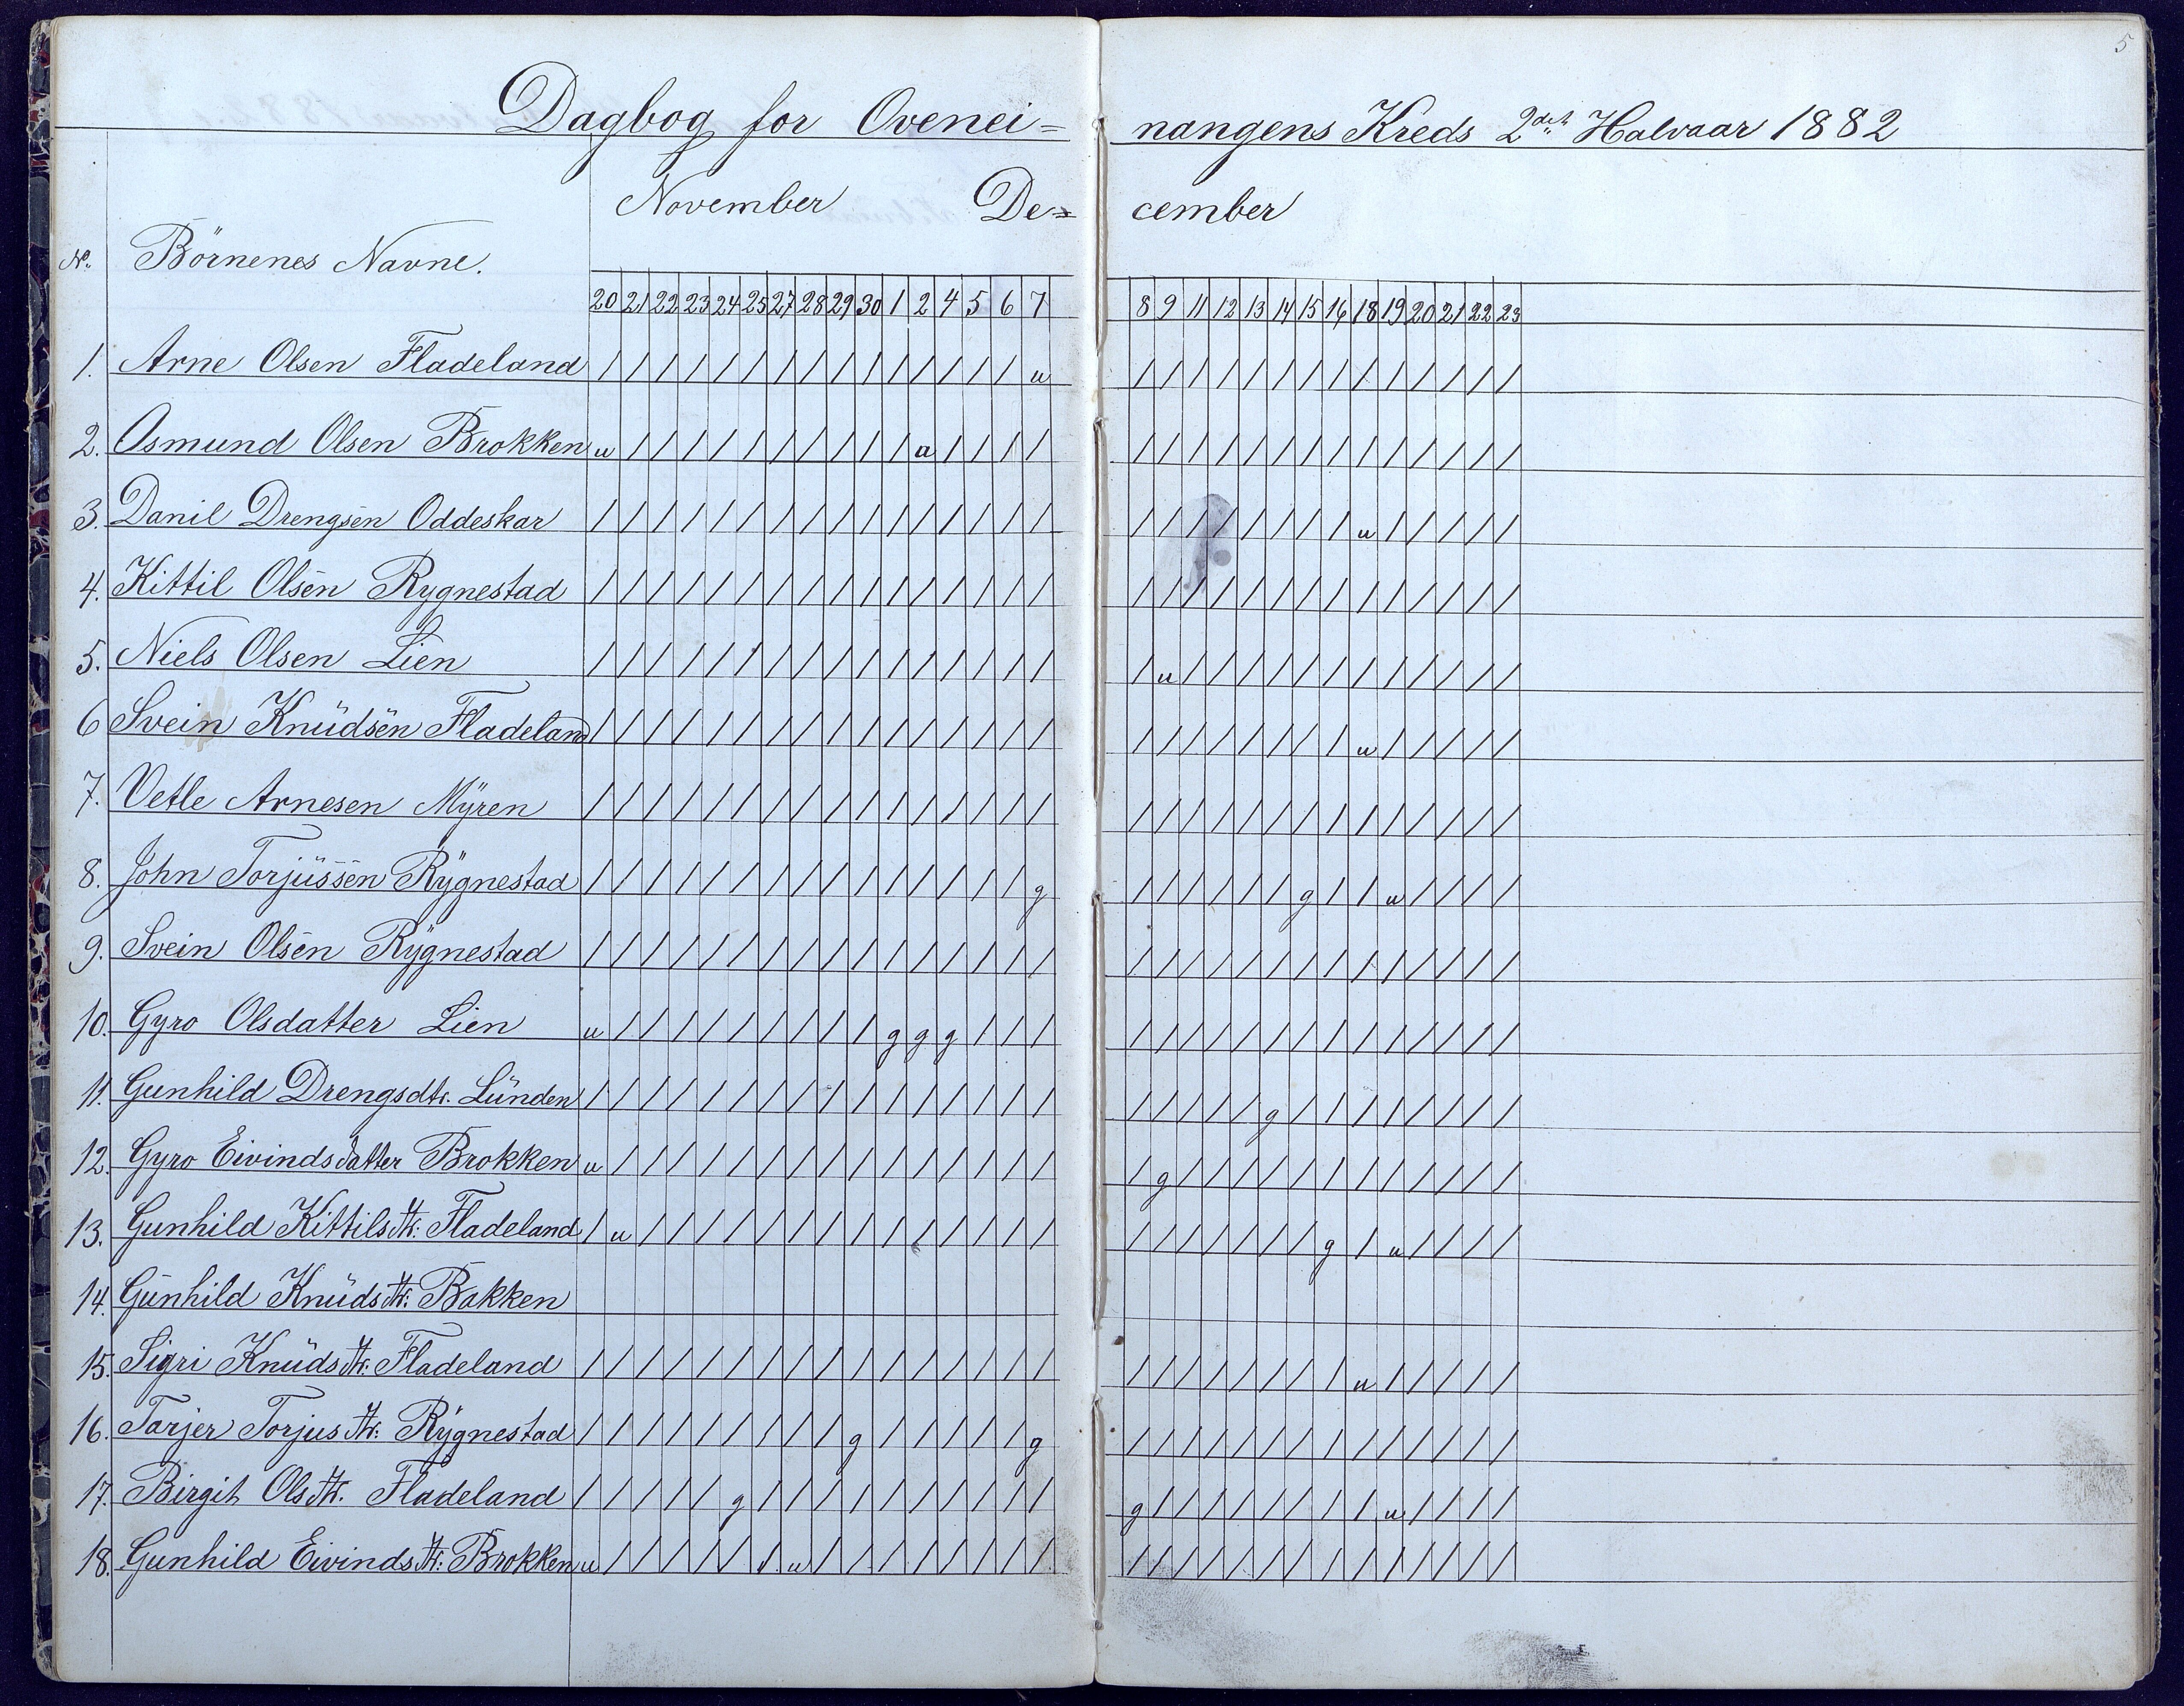 5
Dagbog for Ovenei= nangens Kreds 2det Halvaar 1882
November De= cember
No. Börnenes Navne.
20 21 22 23 24 25 27 28 29 30 1 2 4 5 6 7 8 9 11 12 13 14 15 16 18 19 20 21 22 23
1. Arne Olsen Fladeland / / / / / / / / / / / / / / / u / / / / / / / / / / / / / /
2. Osmund Olsen Brokken u / / / / / / / / / / a / / / / / / / / / / / / / / / / / /
3. Danil Drengsen Oddeskar / / / / / / / / / / / / / / / / / / / / / / / / u / / / / /
4. Kittil Olsen Rygnestad / / / / / / / / / / / / / / / / / / / / / / / / / / / / / /
5. Niels Olsen Lien / / / / / / / / / / / / / / / / / u / / / / / / / / / / / /
6 Svein Knüdsen Fladeland / / / / / / / / / / / / / / / / / / / / / / / / u / / / / /
7. Vetle Arnesen Mÿren / / / / / / / / / / / / / / / / / / / / / / / / / / / / / /
8. John Torjüssen Rÿgnestad / / / / / / / / / / / / / / / g / / / / / / g / / u / / / /
9. Svein Olsen Rÿgnestad / / / / / / / / / / / / / / / / / / / / / / / / / / / / / /
10. Gyro Olsdatter Lien u / / / / / / / / / g g g / / / / / / / / / / / / / / / / /
11. Gunhild Drengsdtr. Lünden / / / / / / / / / / / / / / / / / / / / / g / / / / / / / /
12. Gyro Eivindsdatter Brokken u / / / / / / / / / / / / / / / / g / / / / / / / / / / / /
13. Gunhild Kittilsdtr: Fladeland / u / / / / / / / / / / / / / / / / / / / / / g / u / / / /
14. Günhild Knüdsdtr: Bakken
15. Sigri Knüdsdtr: Fladeland / / / / / / / / / / / / / / / / / / / / / / / / u / / / / /
16. Tarjer Torjusdtr: Rÿgnestad / / / / / / / / / g / / / / / g / / / / / / / / / / / / / /
17. Birgit Olsdtr. Fladeland / / / / / g / / / / / / / / / / g / / / / / / / / u / / / /
18. Gunhild Eivindsdtr: Brokken u / / / / / / u / / / / / / / / / / / / / / / / / / / / / /